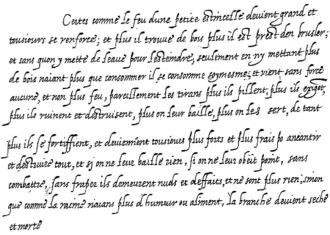 Toutes comme le feu dune petite estincelle devient grand et
tousiours se renforce; et plus il trouve de bois plus il est prest den brusler;
et sans quon y mette de leaue pour lesteindre, seulement en ny mettant plus
de bois naiant plus que consommer il se consomme soymesme, et vient sans force
aucune, et non plus feu, pareillement les tirans plus ils pillent, plus ils exigēt,
plus ils ruinent et destruisent, plus on leur baille, plus on les sert, de tant
plus ils se fortiffient, et deviennent tousiours plus forts et plus frais pō aneantir
et destruire tout, et si on ne leur baille rien, si on ne leur obeit point, sans
combattre, sans frapper ils demeurent nuds et deffaits, et ne sont plus rien, sinon
que comme la racine naiant plus dhumeur ou aliment, la branche devient seche
et morte